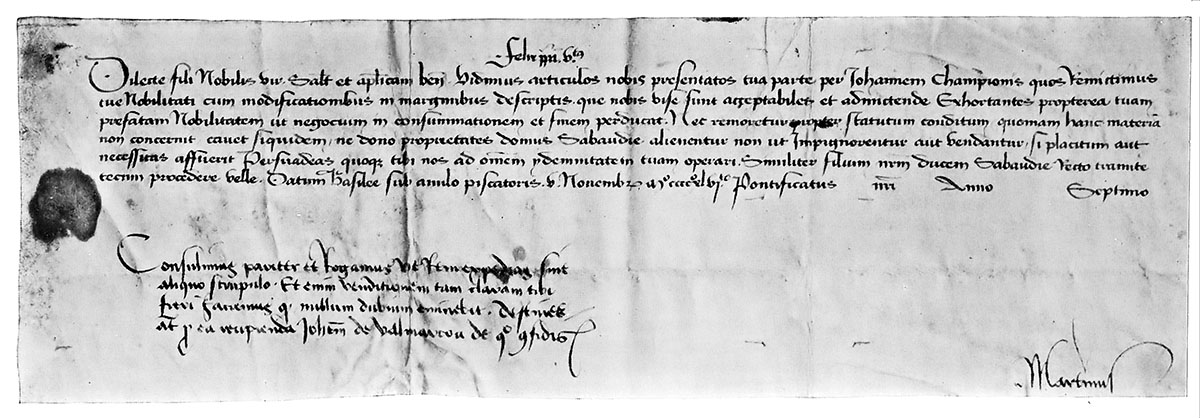 Felix pp. vtus
Dilecte fili Nobilis vir. Salt et aplicam ben. Vidimus articulos nobis presentatos tua parte per Johannem Championis quos Remictimus
tue Nobilitati cum modificationibus in marginibus descriptis que nobis vise sunt acceptabiles et admictende Exhortantes propterea tuam
prefatam Nobilitatem ut negocium in consummationem et finem perducat. Nec remoretur propter statutum conditum quoniam hanc materiā
non concernit cavet siquidem, ne dono proprietates domus Sabaudie alienentur non ut Impignorentur aut vendantur, si placitum aut
necessitas affuerit Persuadeas quoqz tibi nos ad omēm īdemnitatem tuam operari. Similiter filium nrm ducem Sabaudie Recto tramite
tecum procedere velle. Datum Basilee sub anulo piscatoris. v. Novembr. mº ccccº xlviº Pontificatus nri Anno Septimo
Consulimus pariter et Rogamus ut Rem expedias sine
aliquo scrupulo. Et enim venditionem tam claram tibi
fieri faciemus q nullum dubium eminebit. Destines
ad ea recipienda Johem de Valmarcou de qº 9fidis
Martinus